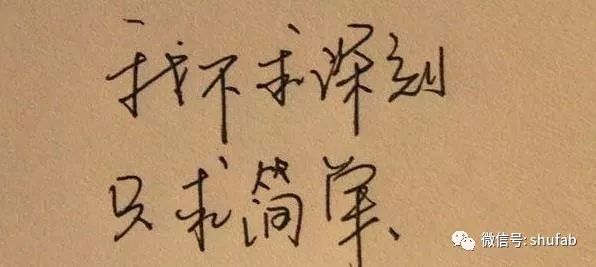 我不求深刻
只求简单
微信号: shufab